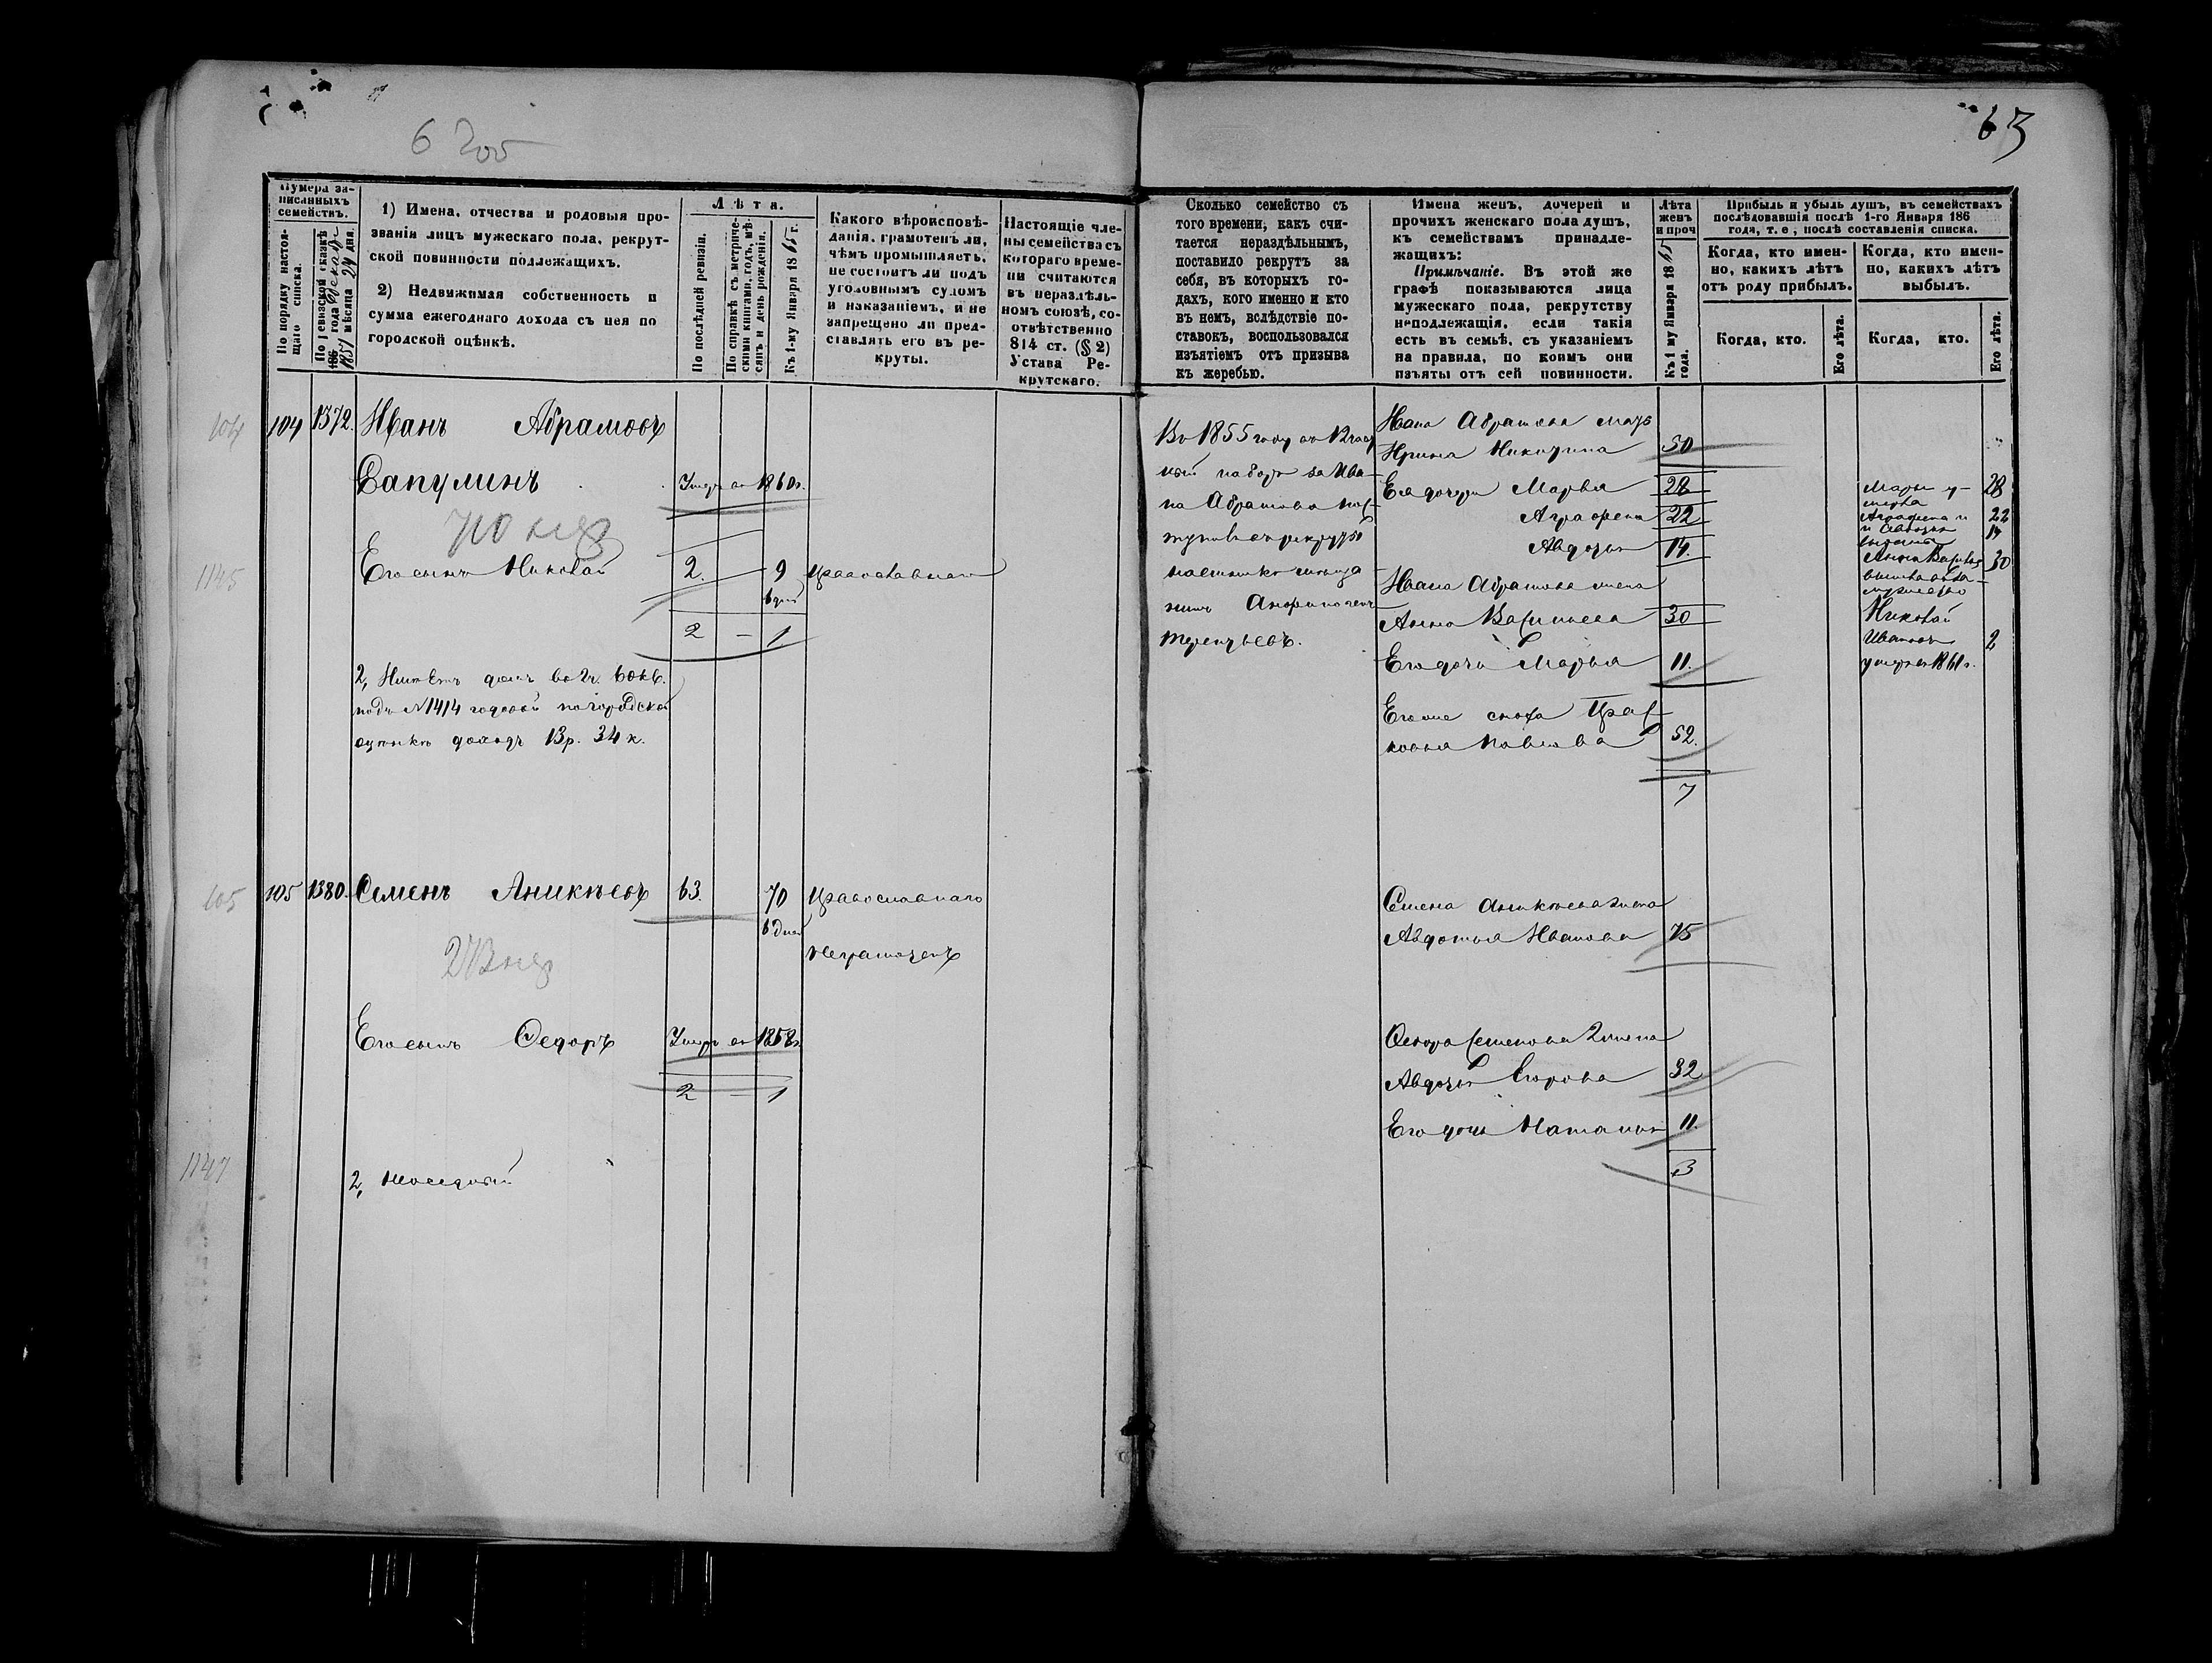 63
Нумера за-
писанныхъ
семействъ.
По порядку настоя-
щаго списка.
По ревизской сказкѣ
186 года
1857 мѣсяца 24 дня.
1) Имена, отчества и родовыя про-
званія лицъ мужескаго пола, рекрут-
ской повинности подлежащихъ.
2) Недвижимая собственность и
сумма ежегоднаго дохода съ нея по
городской оцѣнкѣ.
Лѣта.
По послѣдней ревизіи.
По справкѣ съ метриче-
скими книгами, годъ, мѣ-
сяцъ и день рожденія.
Къ 1-му Января 1865 г.
Какого вѣроисповѣ-
данія, грамотенъ ли,
чѣмъ промышляетъ,
не состоитъ ли подъ
уголовнымъ судомъ
и наказаніемъ, и не
запрещено ли пред-
ставлять его въ ре-
круты.
Настоящіе чле-
ны семейства съ
котораго време-
ни считаются
въ нераздѣль-
номъ союзѣ, со-
отвѣтственно
814 ст. (§ 2)
Устава Ре-
крутскаго.
Сколько семейство съ
того времени, какъ счи-
тается нераздѣльнымъ,
поставило рекрутъ за
себя, въ которыхъ го-
дахъ, кого именно и кто
въ немъ, вслѣдствіе по-
ставокъ, воспользовался
изъятіемъ отъ призыва
къ жеребью.
Имена женъ, дочерей и
прочихъ женскаго пола душъ,
къ семействамъ принадле-
жащихъ:
Примѣчаніе. Въ этой же
графѣ показываются лица
мужескаго пола, рекрутству
неподлежащія, если такія
есть въ семьѣ, съ указаніемъ
на правила, по коимъ они
изъяты отъ сей повинности.
Лѣта
женъ
и проч
Къ 1 му Января 1865
года.
Прибыль и убыль душъ, въ семействахъ
послѣдовавшія послѣ 1-го Января 186
года, т. е., послѣ составленія списка.
Когда, кто имен-
но, какихъ лѣтъ
отъ роду прибылъ.
Когда, кто имен-
но, какихъ лѣтъ
выбылъ.
Когда, кто.
Его лѣта.
Когда, кто.
Его лѣта.
104 104 1372. Иванъ Абрамовъ
Сапулинъ Умеръ въ 1860 г.
1145 Его сынъ Николай 2. 9 Православнаго
6 дней
2 – 1
2, Имѣетъ домъ во 2 ч. 6 окв.
подъ № 1414 годовой по городской
оцѣнкѣ доходъ 13 р. 34 к.
Въ 1855 году въ 12 част
ный наборъ за Ива-
на Абрамова пос-
тупилъ въ рекруты
Терентьевъ.
Ивана Абрамова мать
Ирина Никитина 50
Ея дочери Марья 28
Аграфена 22
Авдотья 14.
Ивана Абрамова жена
Анна Васильева 30
Его дочь Марья 11.
Его же сноха Прас-
ковья Павлова 52.
7
28
Аграфена и 22
и Авдотья 14
Анна Васильев 30
Николай
Ивановъ 2
умеръ 1861 г.
105 105 1380. Семенъ Аникѣевъ 63. 70 Православнаго
6 дней
неграмотенъ
Его сынъ Федоръ Умеръ въ 1858 г.
2 – 1
1147
2,
Семена Аникѣева жена
Авдотья Иванова 75
Федора Семенова 2 жена
Авдотья Егорова 32
Его дочь Наталья 11.
3